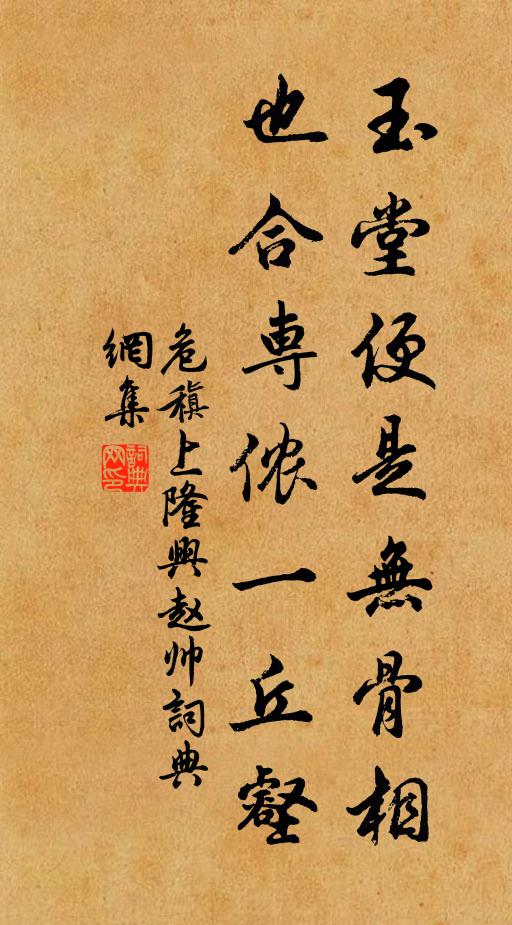 玉堂便是無骨相
也合専侬一丘壑
危稹上隆興赵帅詞典
網集
詞典
网印